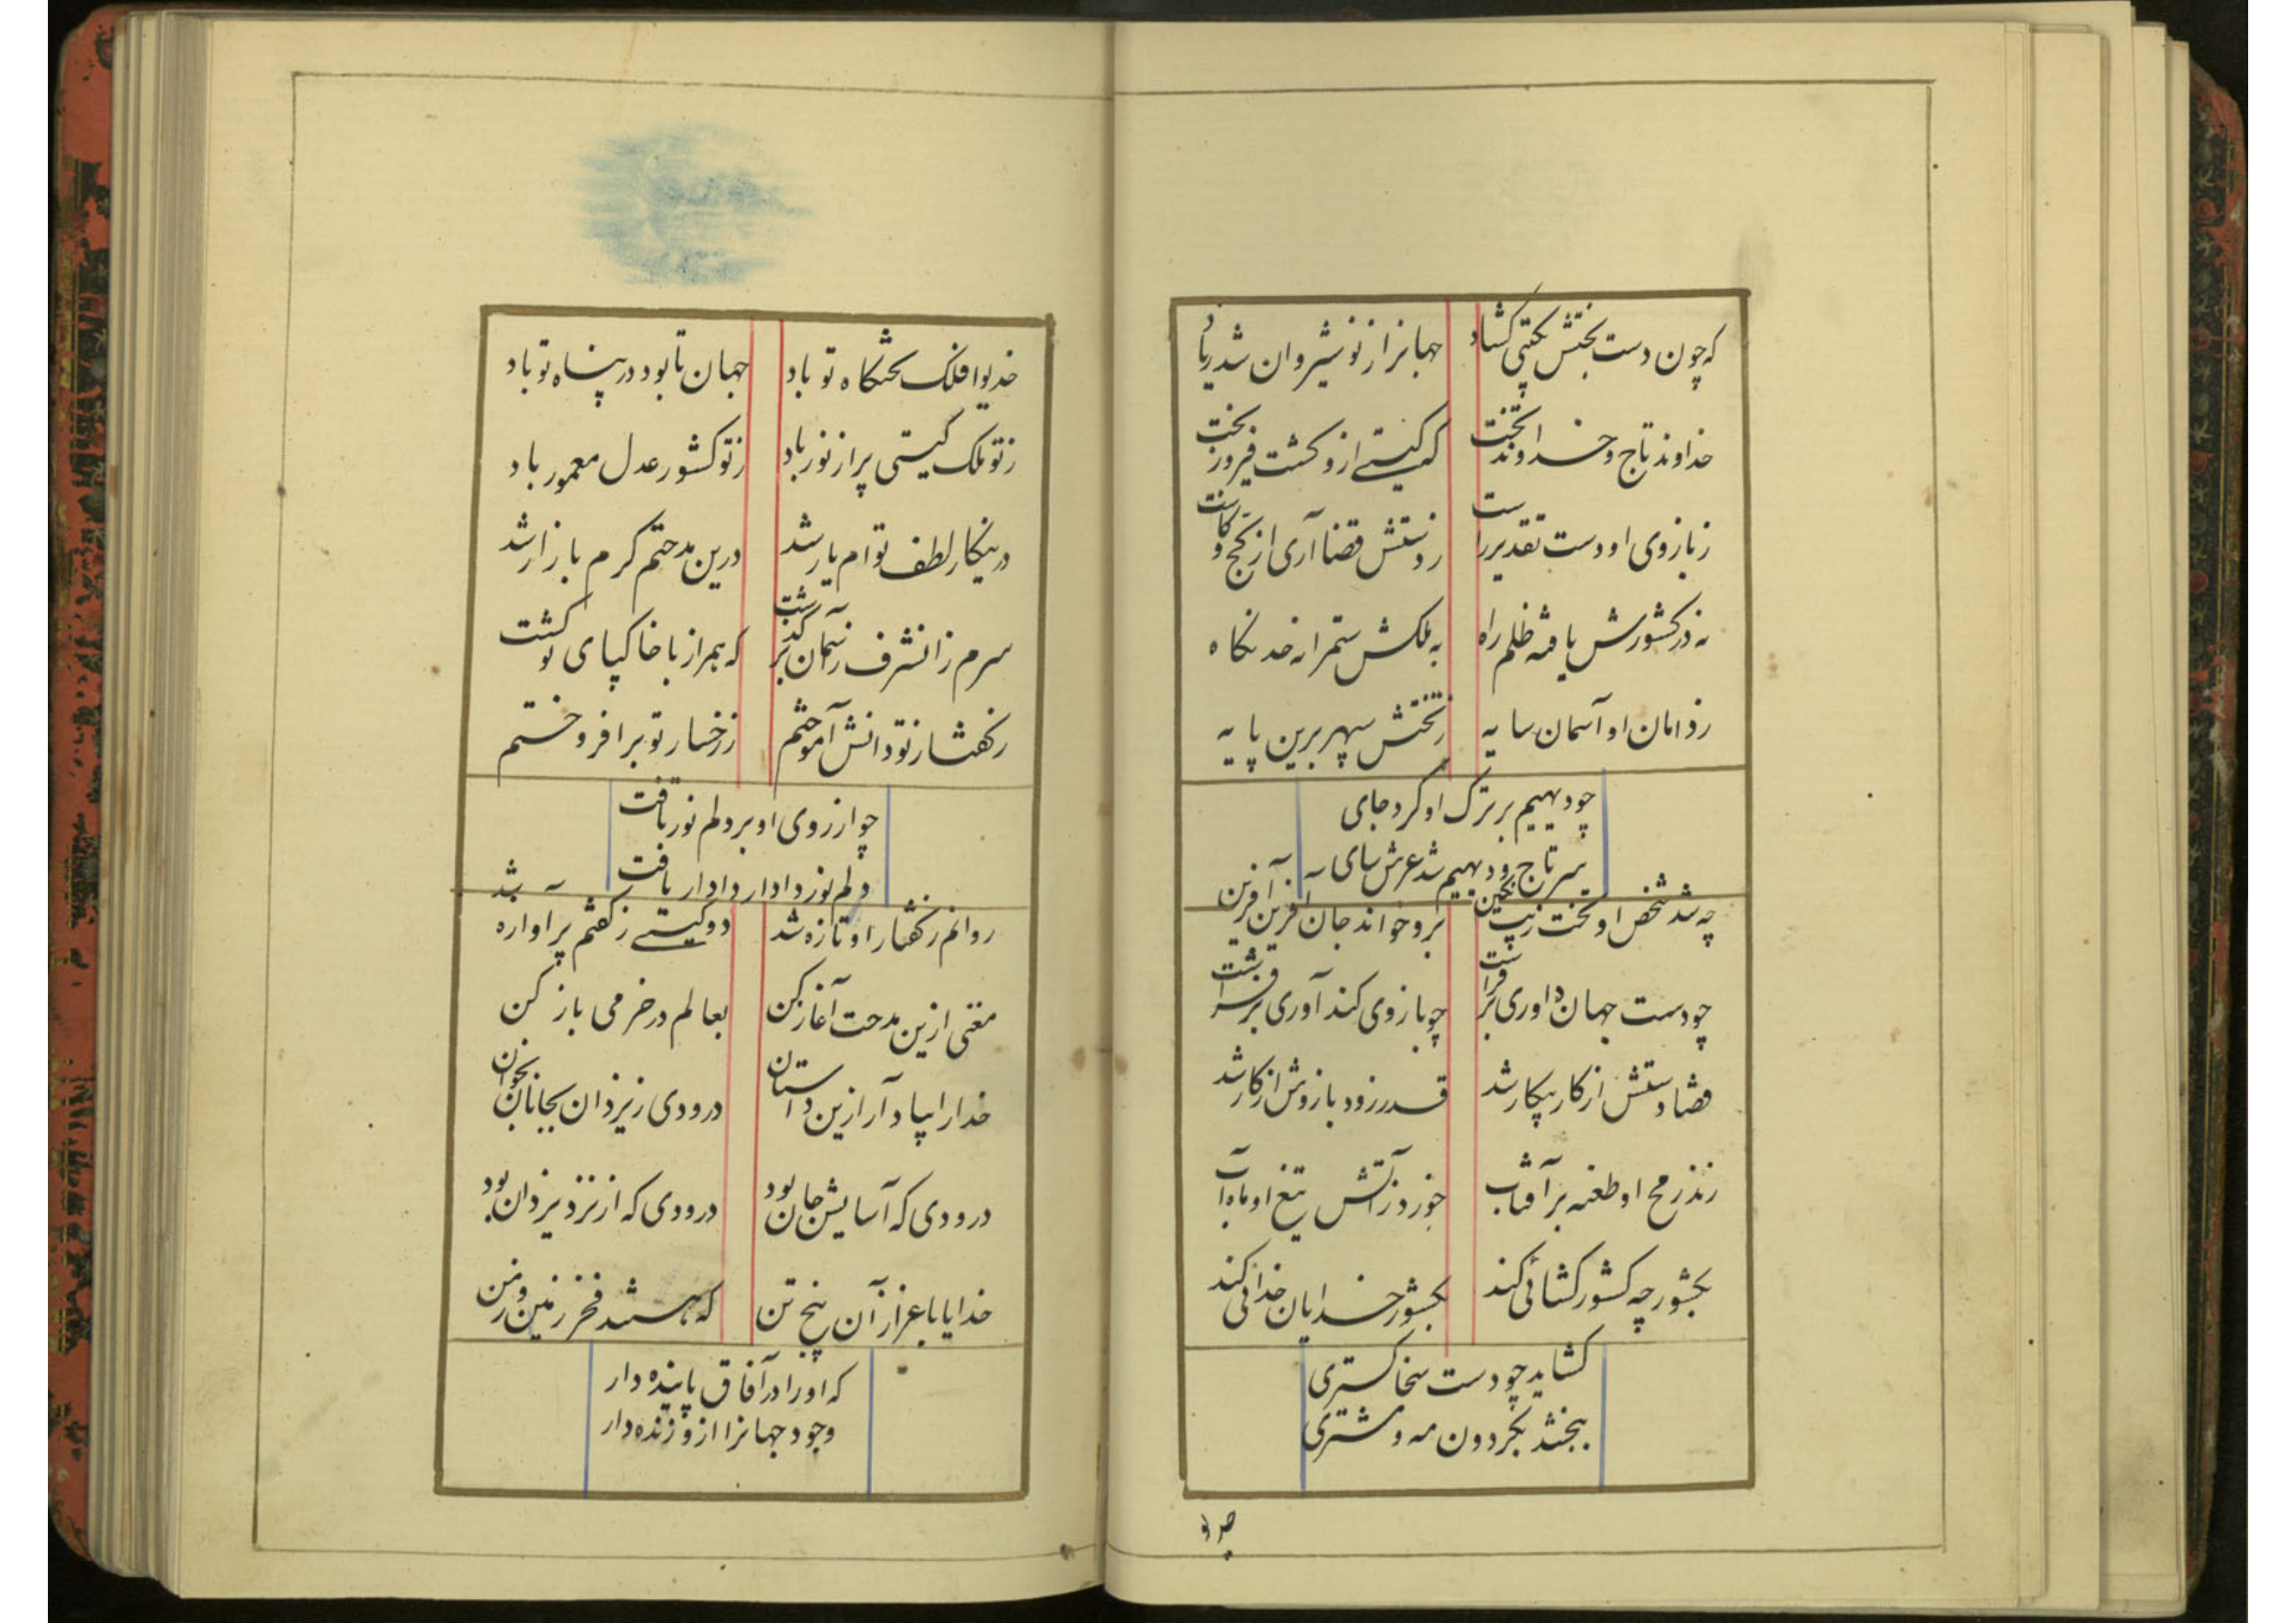 که چون دست بختش بگیتی گشاد
جهانرا ز نوشیروان شد زیاد
خداوند تاج و خداوند تخت
که گیتی ازو گشت فیروز بخت
ز بازوی او دست تقدیر راست
ز دستش قضا آری از کج و کاست
نه در کشورش یافته ظلم راه
به ملکش ستمرا نه خد نگاه
ز دامان او آسمان سایه
ز تختش سپهر برین پایه
چو دیهیم بر ترک او کرد جای
سر تاج و دیهیم شد عرش سای
چه شد شخص او تخت زیب نگین
برو خواند جان آفرین آفرین
چو دست جهان داوری بر فراشت
چو بازوی کند آوری بر فراشت
قضا دستش از کار بیکار شد
قدر زود بازوش از کار شد
زند رمح او طعنه بر آفتاب
خورد ز آتش تیغ او ماه آب
بکشور چه کشور کشائی کند
بکشور خدایان خدائی کند
گشاید چو دست سخا گستری
ببخشد بگردون مه و مشتری
خدیوا فلک تختگاه تو باد
جهان تا بود در پناه تو باد
ز تو ملک گیتی پر از نور باد
ز تو کشور عدل معمور باد
درینکار لطف تو ام یار شد
درین مدحتم کرم بازار شد
سرم زانشرف ز آسمان بر گذشت
که همراز با خاکپای تو گشت
ز گفتار تو دانش آموختم
ز رخسار تو بر افروختم
چو از روی او بر دلم نور تافت
دلم نور دادار دادار یافت
روانم ز گفتار او تازه شد
دو گیتی ز گفتم پر آوازه شد
مغنی ازین مدحت آغاز کن
بعالم در خرمی باز کن
خدا را بیاد آر ازین داستان
درودی ز یزدان بجانان بخوان
درودی که آسایش جان بود
درودی که از نزد یزدان بود
خدایا باعزاز آن پنج تن
که هستند فخر زمین و زمن
که او را در آفاق پاینده دار
وجود جهانرا ازو زنده دار